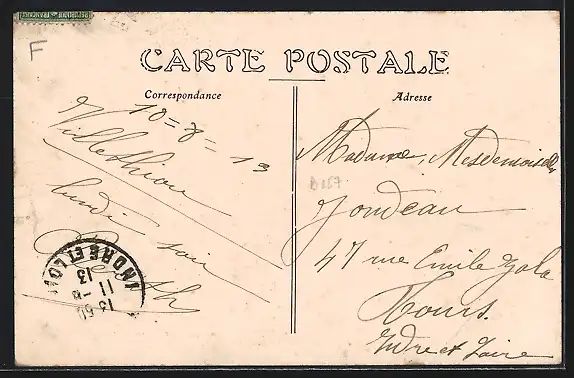 F
CARTE POSTALE
Correspondance
Adresse
10=8=13
Villethiou
lundi soir
Madame, Mesdemoiselles
Jondeau
47 rue Emile Zola
Tours.
Indre et Loire
INDRE ET LOI
13 50
11 - 8
13